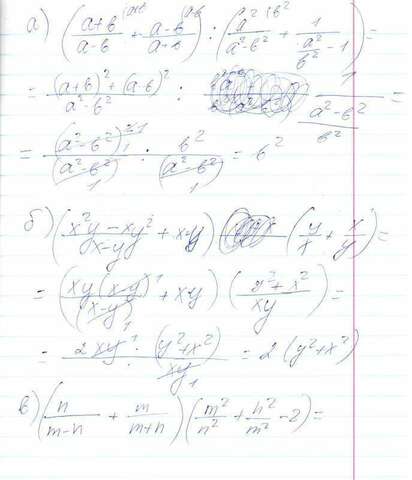 а) ((a+в)/(a-в) + (a-в)/(a+в)) : (a²+в²/(a²-в²) + 1/(a²/в² - 1)) =
= ((a+в)² + (a-в)²)/(a²-в²) : 1/((a²-в²)/в²) =
= (a²-в²)/(a²-в²) : в²/(a²-в²) = в²
б) ((x²y - xy²)/(x-y) + xy) (y/x + x/y) =
= (xy(x-y)/(x-y) + xy) ((y²+x²)/xy) =
= 2xy · (y²+x²)/xy = 2(y²+x²)
в) (n/(m-n) + m/(m+n)) (m²/n² + n²/m² - 2) =